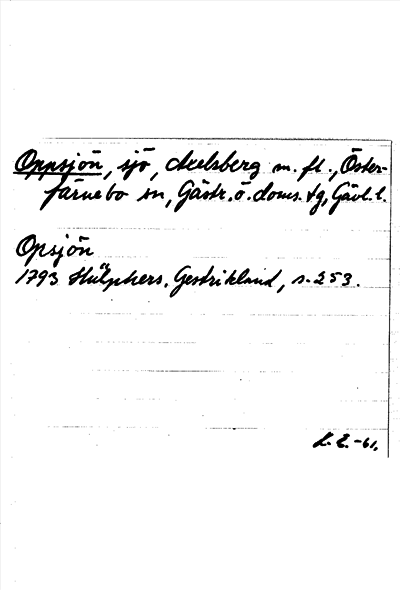 Oppsjön, sjö, Axelsberg m. fl., Öster-
färnebo sn, Gästr. ö. doms. tg, Gävl. l.
Opsjön
1793 Hülphers, Gestrikland, s. 253.
L. E. -61.